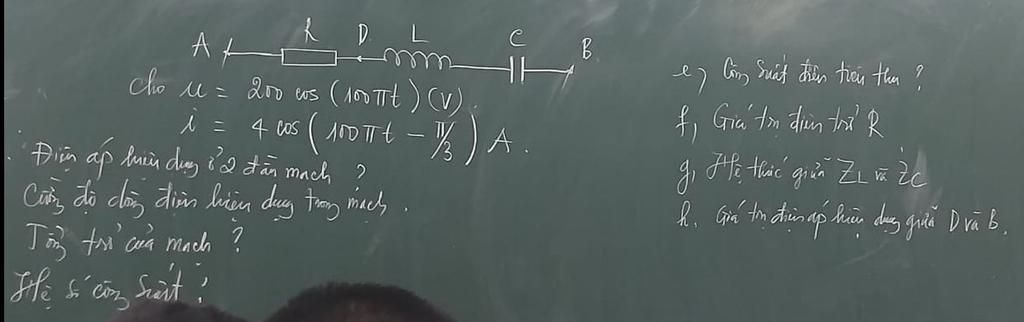 A R D L C B
cho u = 200 cos (100πt) (V)
i = 4 cos (100πt - π/3) A.
Điện áp hiệu dụng ở 2 đầu mạch ?
Cường độ dòng điện hiệu dụng trong mạch.
Tổng trở của mạch ?
Hệ số công suất ?
e, Công suất điện tiêu thụ ?
f, Giá trị điện trở R
g, Hệ thức giữa ZL và ZC
h. Giá trị điện áp hiệu dụng giữa D và B.